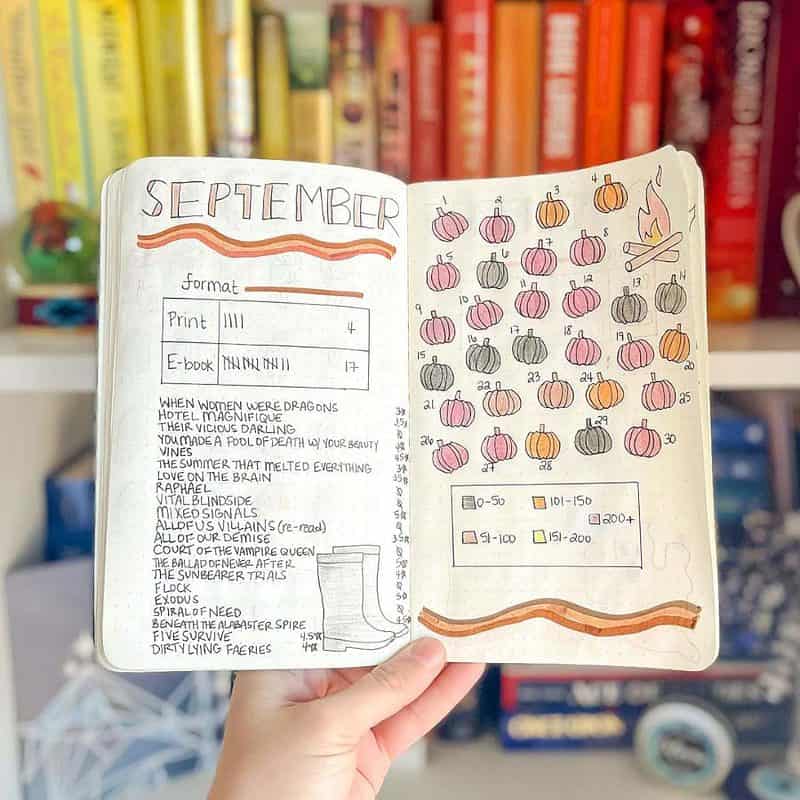 SEPTEMBER
format
Print 4
E-book 17
WHEN WOMEN WERE DRAGONS
HOTEL MAGNIFIQUE 3.5
THEIR VICIOUS DARLING
YOU MADE A FOOL OF DEATH W/ YOUR BEAUTY
VINES
THE SUMMER THAT MELTED EVERYTHING
LOVE ON THE BRAIN
RAPHAEL
VITAL BLINDSIDE
MIXED SIGNALS
ALL OF US VILLAINS (re-read)
ALL OF OUR DEMISE
COURT OF THE VAMPIRE QUEEN
THE BALLAD OF NEVER AFTER
THE SUNBEARER TRIALS
FLOCK
EXODUS
SPIRAL OF NEED
BENEATH THE ALABASTER SPIRE
FIVE SURVIVE 4.5
DIRTY LYING FAERIES 4
1 2 3 4
5 6 7 8
9 10 11 12 13 14
15 16 17 18 19 20
21 22 23 24 25
26 27 28 29 30
0-50 101-150
200+
51-100 151-200